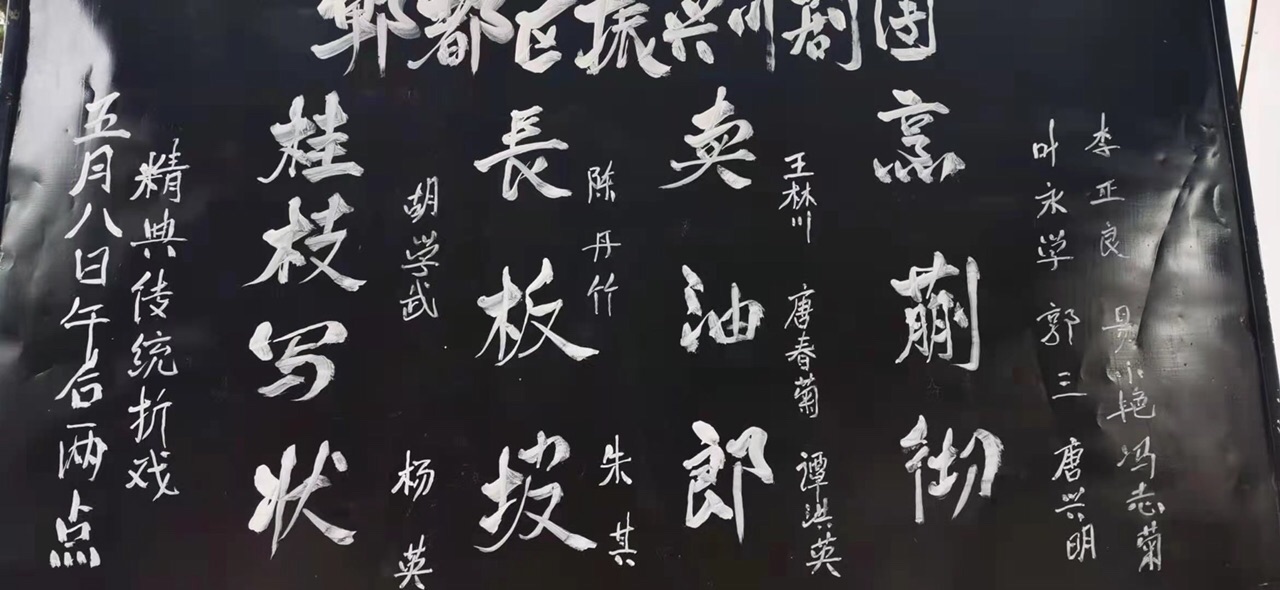 郫都区振兴川剧团
李正良 小艳 冯志菊
叶永学 郭三 唐兴明
烹蒯彻
王林川 唐春菊 谭洪英
卖油郎
陈丹竹 朱其
長板坡
胡学武 杨英
桂枝写状
精典传统折戏
五月八日午后两点